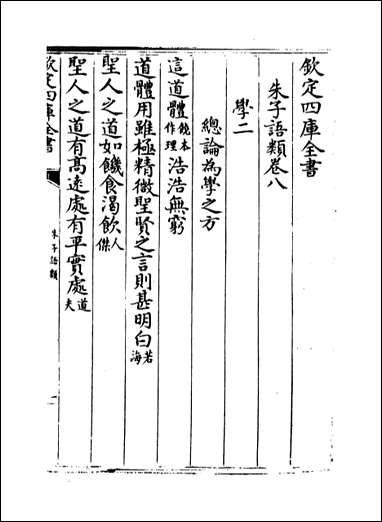 欽定四庫全書
朱子語類卷八
學二
總論為學之方
這道體饒本作理浩浩無窮
道體用雖極精微聖賢之言則甚明白若海
聖人之道如饑食渴飲人傑
聖人之道有髙遠處有平實處道夫
欽定四庫全書
朱子語類
一